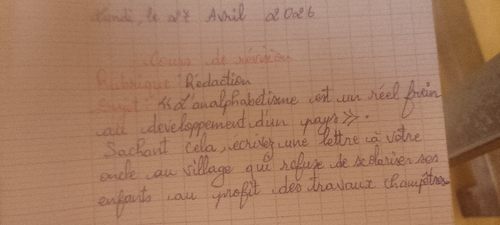 Lundi, le 27 Avril 2026
Cours de révision
Rubrique : Rédaction
Sujet : « L'analphabétisme est un réel frein
au developpement d'un pays ».
Sachant cela, ecrivez une lettre à votre
oncle au village qui refuse de scolariser ses
enfants au profit des travaux champêtres